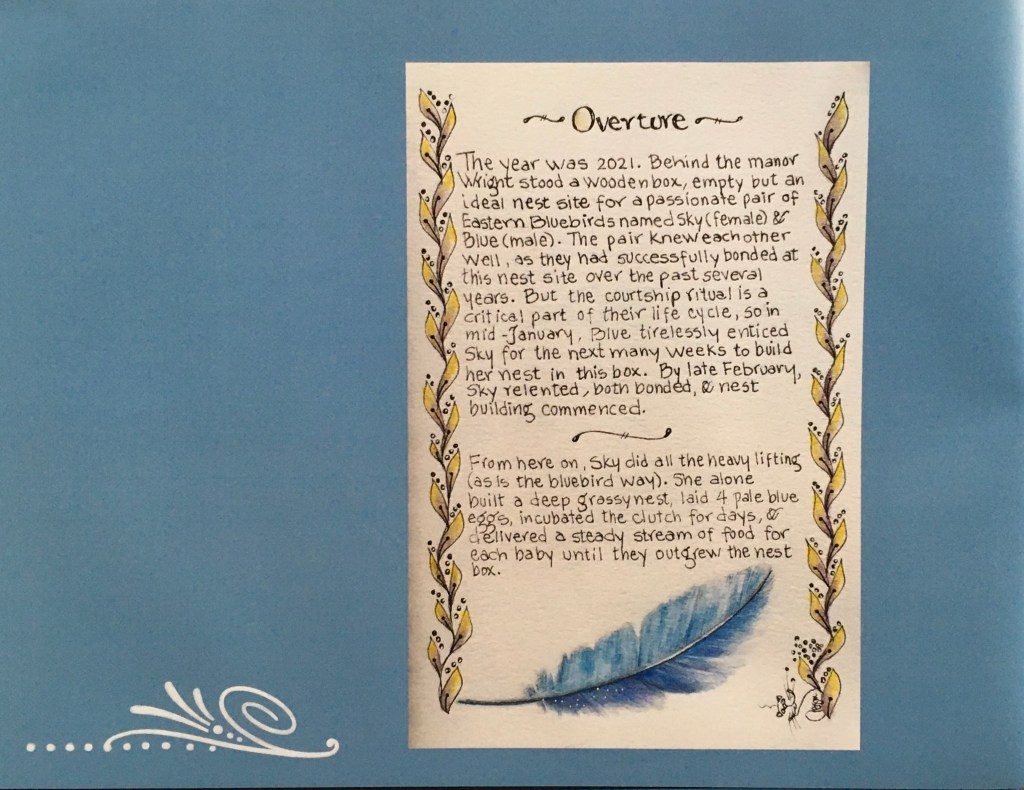 Overture
The year was 2021. Behind the manor
Wright stood a wooden box, empty but an
ideal nest site for a passionate pair of
Eastern Bluebirds named Sky (female) &
Blue (male). The pair knew each other
well, as they had successfully bonded at
this nest site over the past several
years. But the courtship ritual is a
critical part of their life cycle, so in
mid-January, Blue tirelessly enticed
Sky for the next many weeks to build
her nest in this box. By late February,
Sky relented, both bonded, & nest
building commenced.
From here on, Sky did all the heavy lifting
(as is the bluebird way). She alone
built a deep grassy nest, laid 4 pale blue
eggs, incubated the clutch for days, &
delivered a steady stream of food for
each baby until they outgrew the nest
box.